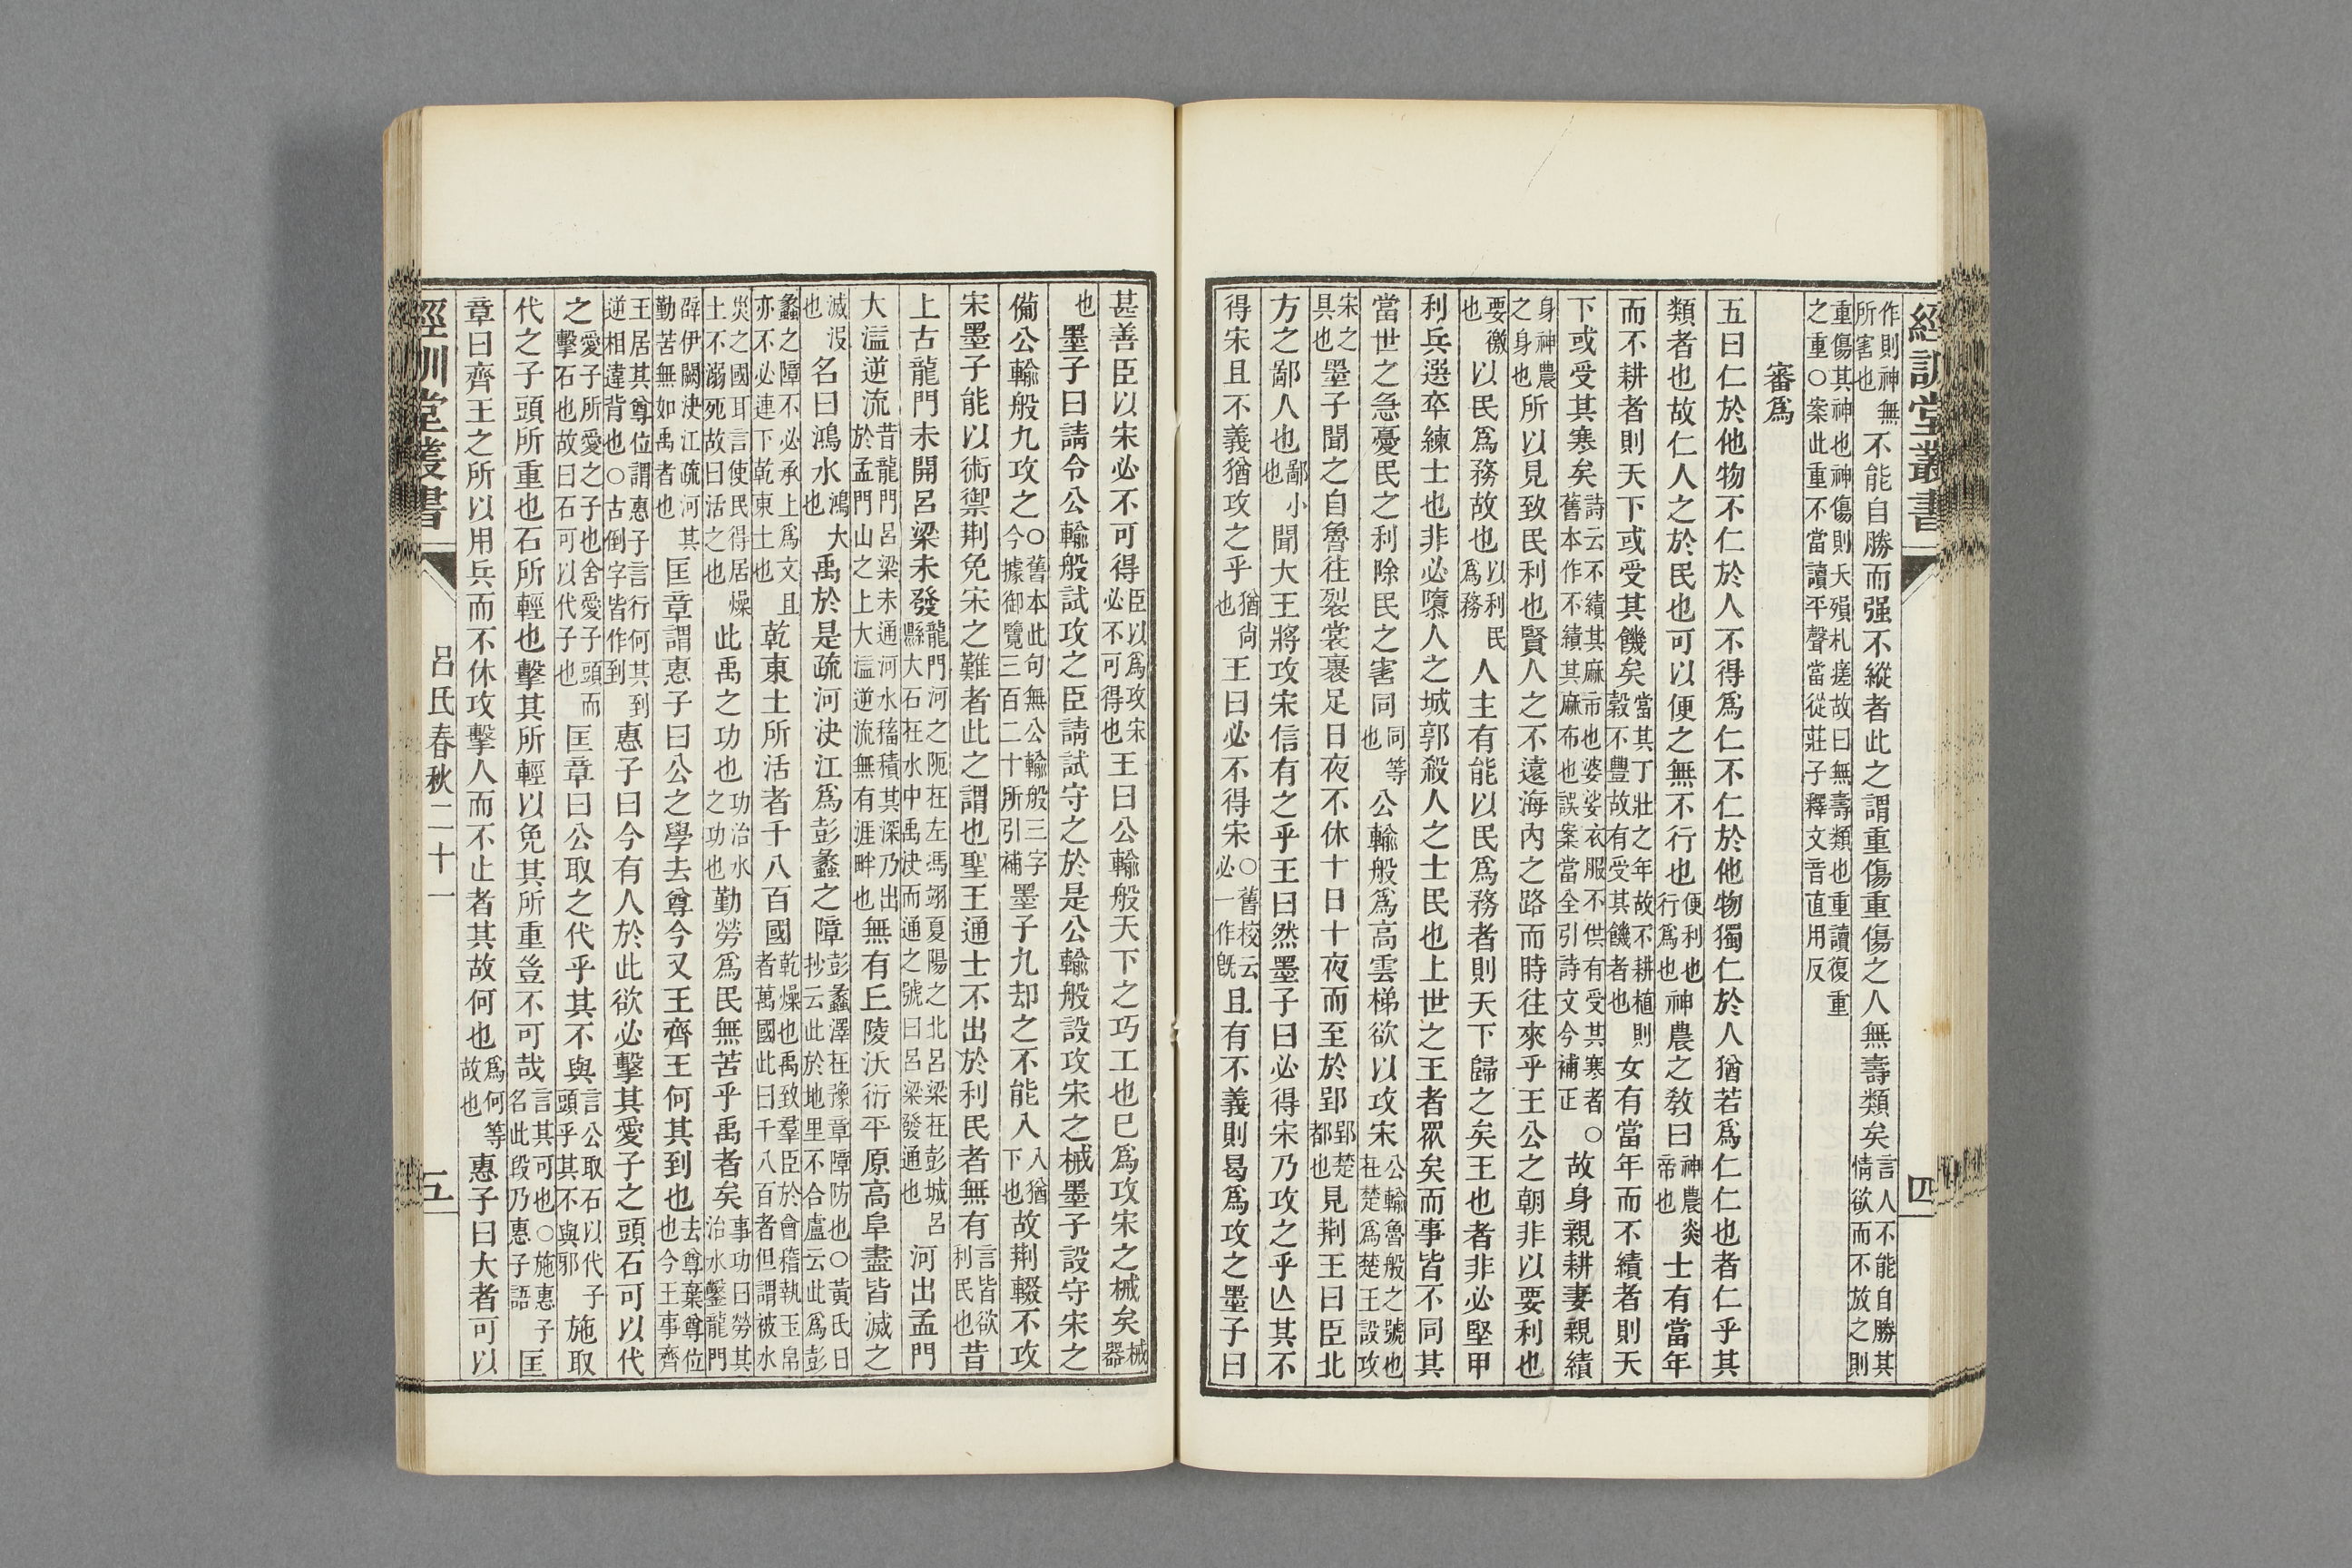 經訓堂叢書 四
作則神無所害也不能自勝而强不縱者此之謂重傷重傷之人無壽類矣言人不能自勝其情欲而不放之則
重傷其神也神傷則夭殞札瘥故曰無壽類也重讀復重之重○案此重不當讀平聲當從莊子釋文音直用反
審爲
五曰仁於他物不仁於人不得爲仁不仁於他物獨仁於人猶若爲仁仁也者仁乎其
類者也故仁人之於民也可以便之無不行也便利也行爲也神農之敎曰神農炎帝也士有當年
而不耕者則天下或受其饑矣當其丁壯之年故不耕植則穀不豐故有受其饑者也女有當年而不績者則天
下或受其寒矣詩云不績其麻市也婆娑衣服不供有受其寒者○舊本作不績其麻布也誤案當全引詩文今補正故身親耕妻親績
身神農之身也所以見致民利也賢人之不遠海內之路而時往來乎王公之朝非以要利也
要徼也以民爲務故也以利民爲務人主有能以民爲務者則天下歸之矣王也者非必堅甲
利兵選卒練士也非必隳人之城郭殺人之士民也上世之王者眾矣而事皆不同其
當世之急憂民之利除民之害同同等也公輸般爲高雲梯欲以攻宋公輸魯般之號也在楚爲楚王設攻
宋之具也墨子聞之自魯往裂裳裹足日夜不休十日十夜而至於郢郢楚都也見荆王曰臣北
方之鄙人也鄙小也聞大王將攻宋信有之乎王曰然墨子曰必得宋乃攻之乎亾其不
得宋且不義猶攻之乎猶尙也王曰必不得宋○舊校云必一作旣且有不義則曷爲攻之墨子曰
甚善臣以宋必不可得臣以爲攻宋必不可得也王曰公輸般天下之巧工也已爲攻宋之械矣械器
也墨子曰請令公輸般試攻之臣請試守之於是公輸般設攻宋之械墨子設守宋之
備公輸般九攻之○舊本此句無公輸般三字今據御覽三百二十所引補墨子九却之不能入入猶下也故荆輟不攻
宋墨子能以術禦荆免宋之難者此之謂也聖王通士不出於利民者無有言皆欲利民也昔
上古龍門未開呂梁未發龍門河之阨在左馮翊夏陽之北呂梁在彭城呂縣大石在水中禹決而通之號曰呂梁發通也河出孟門
大溢逆流昔龍門呂梁未通河水稸積其深乃出於孟門山之上大溢逆流無有涯畔也無有丘陵沃衍平原高阜盡皆滅之
滅沒也名曰鴻水鴻大也禹於是疏河決江爲彭蠡之障彭蠡澤在豫章障防也○黃氏日抄云此於地里不合盧云此爲彭
蠡之障不必承上爲文且亦不必連下乾東土也乾東土所活者千八百國乾燥也禹致羣臣於會稽執玉帛者萬國此曰千八百者但謂被水
災之國耳言使民得居燥土不溺死故曰活之也此禹之功也功治水之功也勤勞爲民無苦乎禹者矣事功曰勞其治水鑿龍門
辟伊闕決江疏河其勤苦無如禹者也匡章謂惠子曰公之學去尊今又王齊王何其到也去尊棄尊位也今王事齊
王居其尊位謂惠子言行何其到逆相違背也○古倒字皆作到惠子曰今有人於此欲必擊其愛子之頭石可以代
之愛子所愛之子也舍愛子頭而擊石也故曰石可以代子也匡章曰公取之代乎其不與言公取石以代子頭乎其不與邪施取
代之子頭所重也石所輕也擊其所輕以免其所重豈不可哉言其可也○施惠子名此段乃惠子語匡
章曰齊王之所以用兵而不休攻擊人而不止者其故何也爲何等故也惠子曰大者可以
經訓堂叢書 呂氏春秋二十一 五